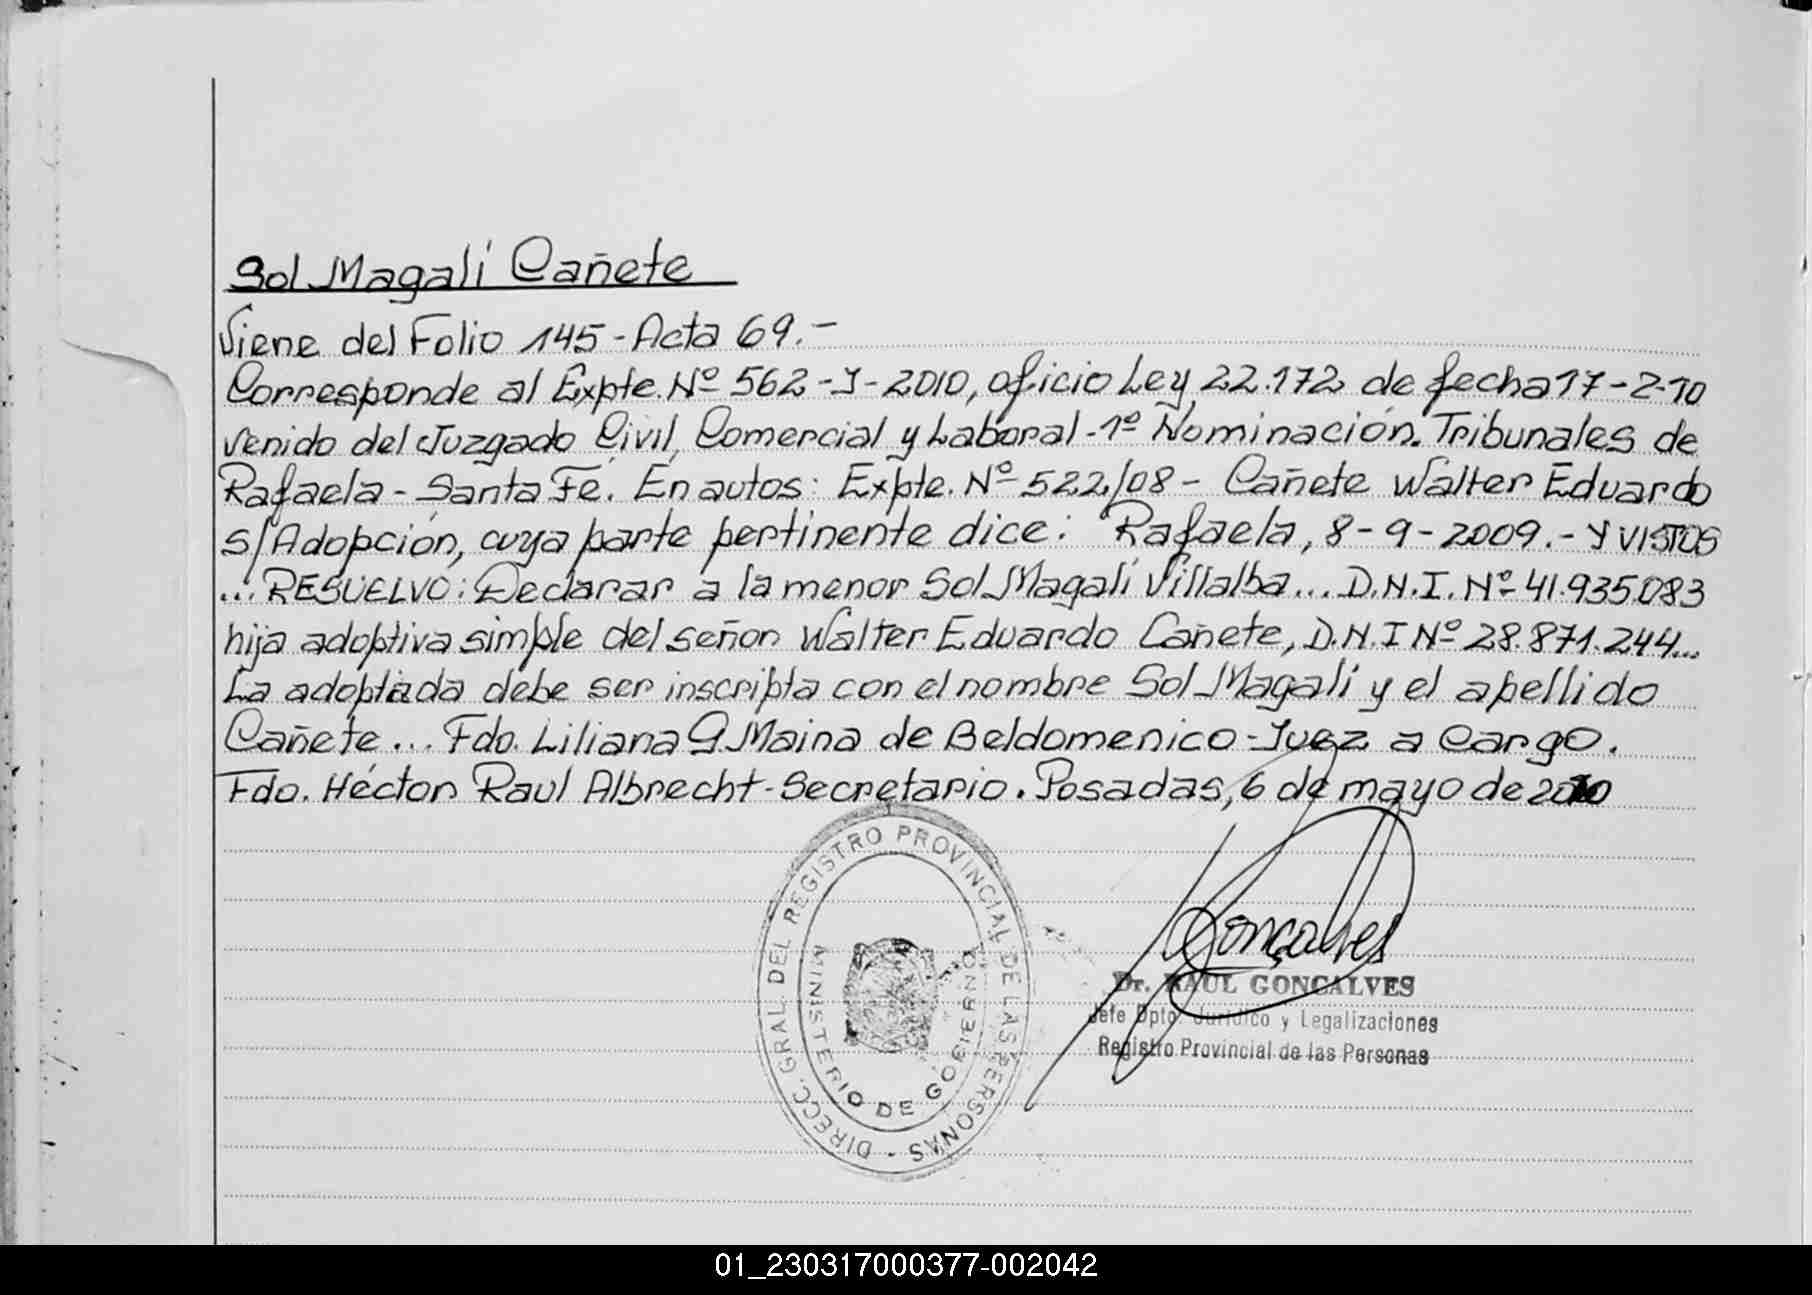 Sol Magalí Cañete
Viene del Folio 145 - Acta 69.-
Corresponde al Expte. Nº 562-J-2010, oficio Ley 22.172 de fecha 17-2-10
venido del Juzgado Civil, Comercial y Laboral - 1º Nominación. Tribunales de
Rafaela - Santa Fé. En autos: Expte. Nº 522/08 - Cañete Walter Eduardo
s/Adopción, cuya parte pertinente dice: "Rafaela, 8-9-2009.- Y VISTOS
... RESUELVO: Declarar a la menor Sol Magalí Villalba... D.N.I. Nº 41.935.083
hija adoptiva simple del señor Walter Eduardo Cañete, D.N.I Nº 28.871.244...
La adoptada debe ser inscripta con el nombre Sol Magalí y el apellido
Cañete... Fdo. Liliana G Maina de Beldomenico - Juez a cargo.
Fdo. Héctor Raul Albrecht - Secretario. Posadas, 6 de mayo de 2010
DIRECC. GRAL. DEL REGISTRO PROVINCIAL DE LAS PERSONAS -
MINISTERIO DE GOBIERNO
Gonçalves
Dr. RAUL GONCALVES
Jefe Dpto. Jurídico y Legalizaciones
Registro Provincial de las Personas
01_230317000377-002042